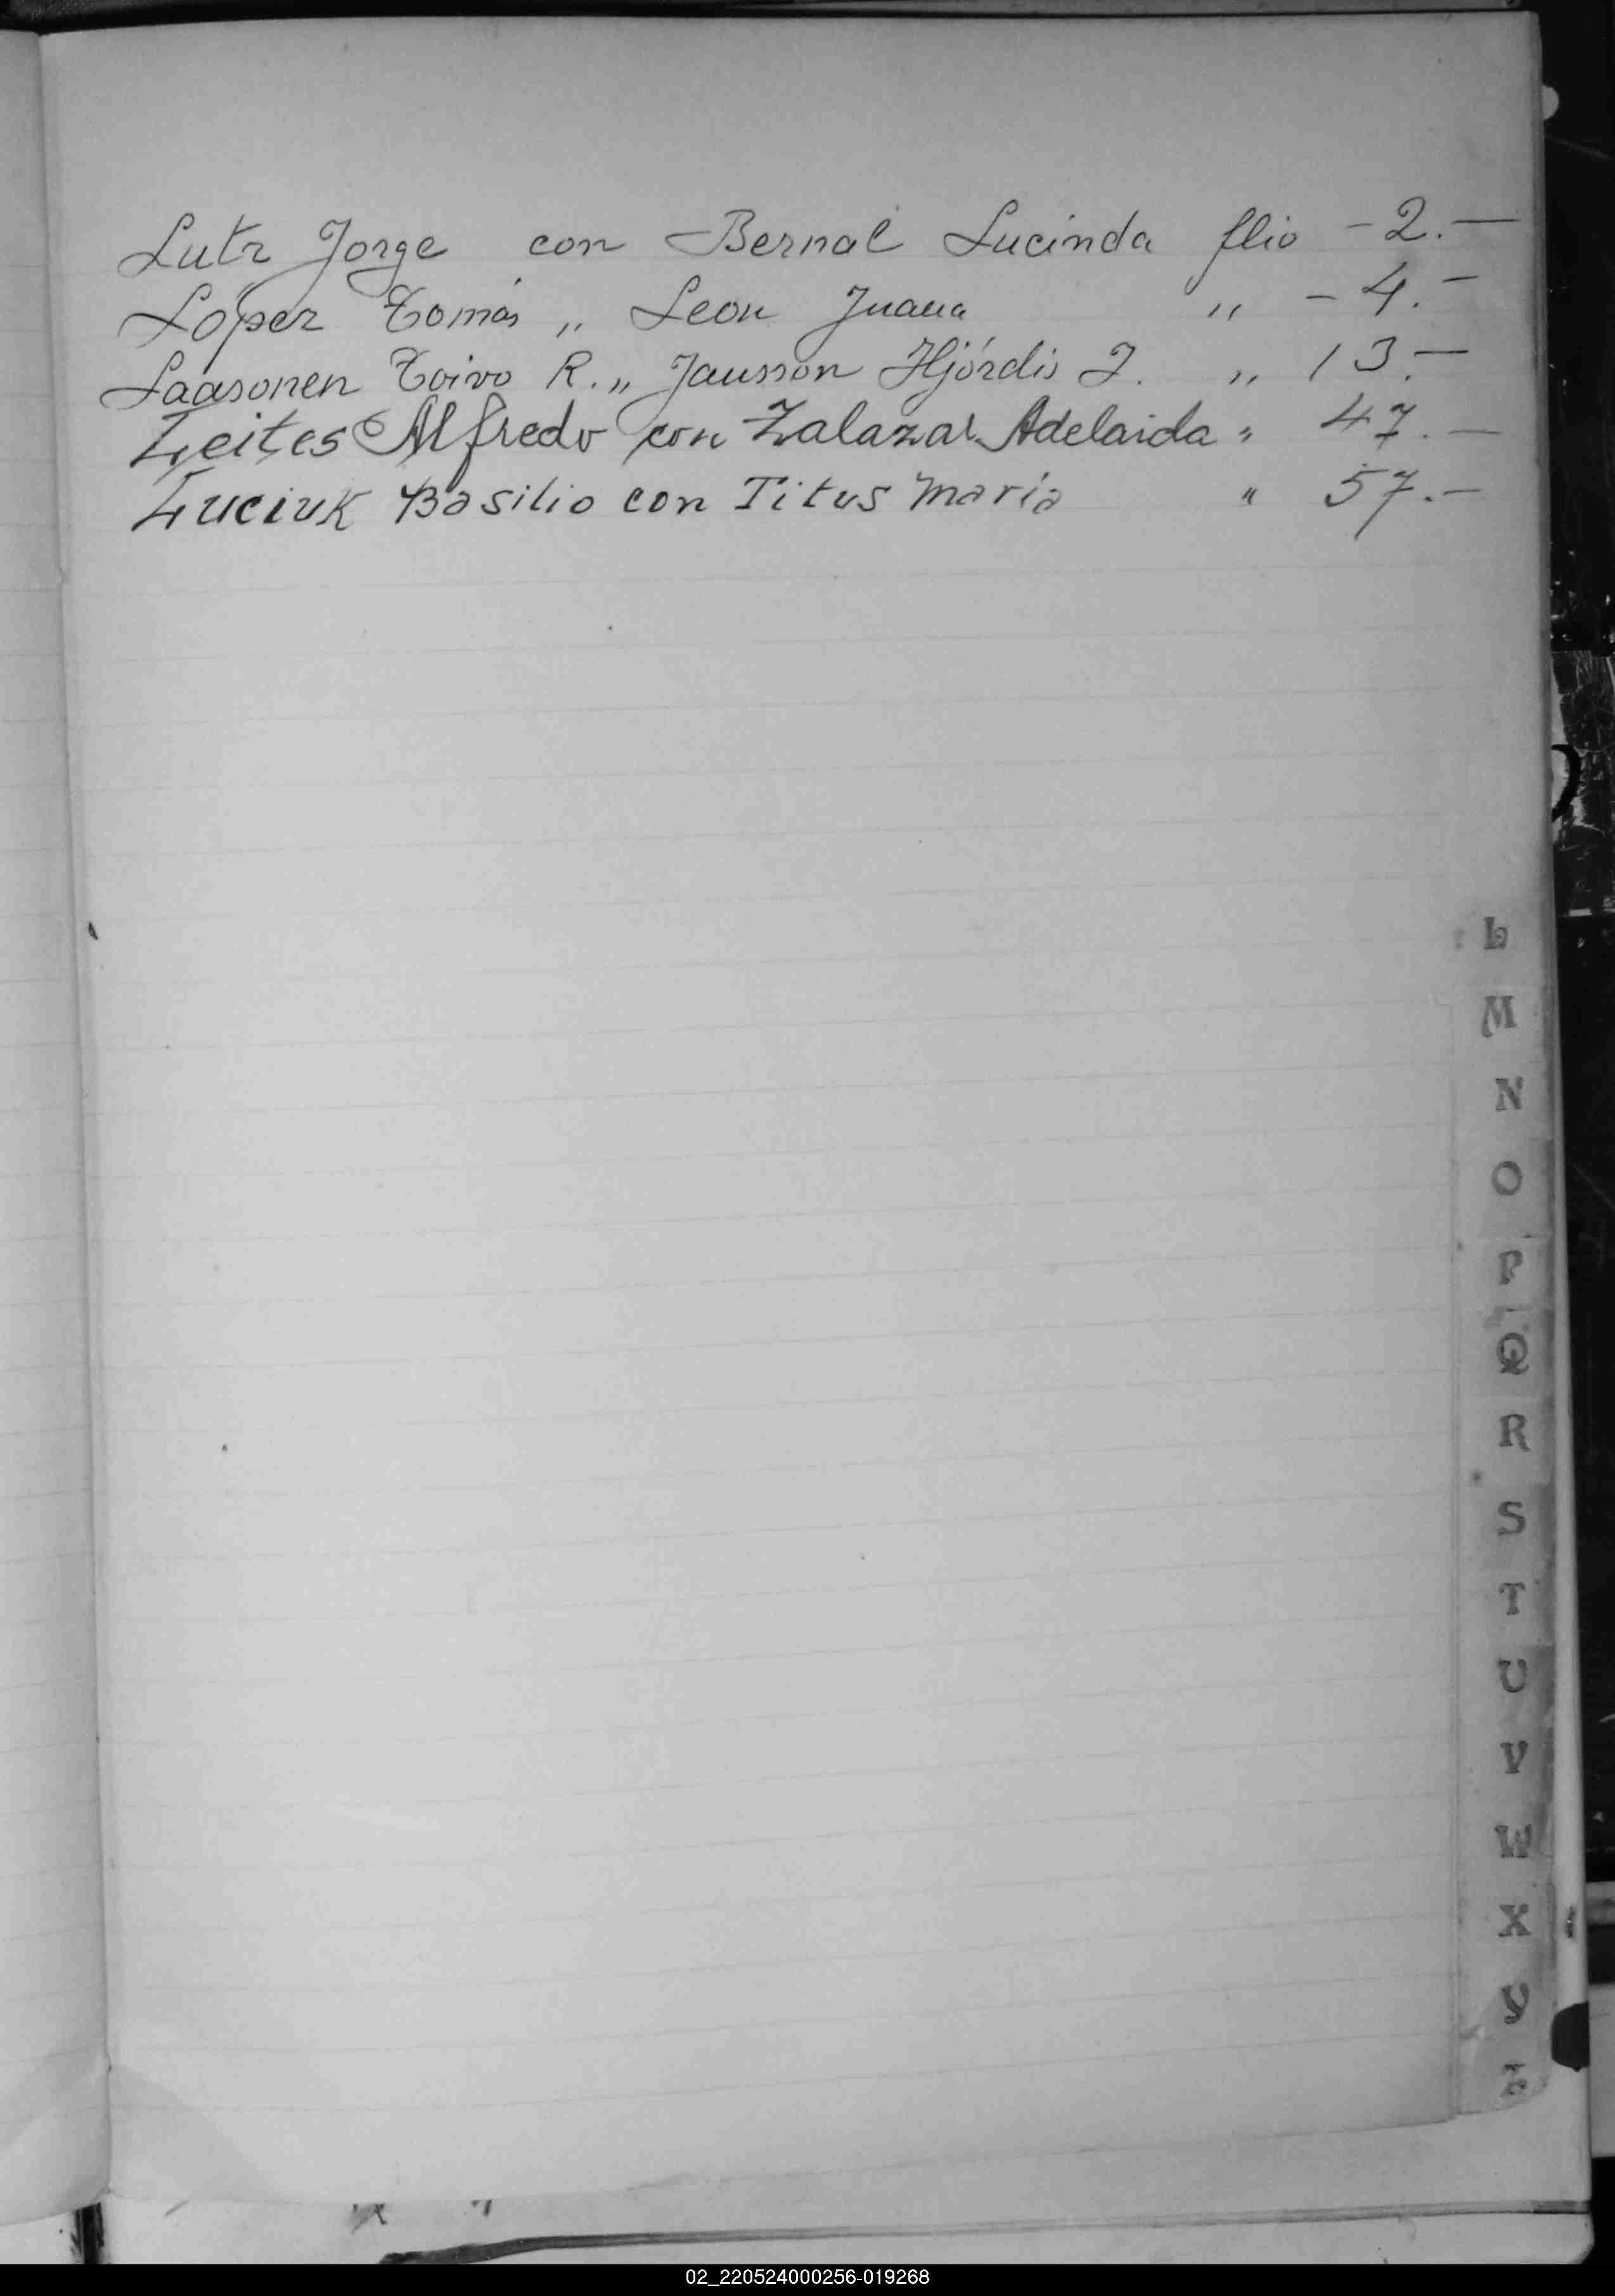 Lutz Jorge con Bernal Lucinda flio - 2.—
López Tomás „ Leon Juana „ - 4.—
Laasonen Toivo R. „ Jansson Hjórdis I. „ 13.—
Leites Alfredo con Zalazar Adelaida " 47.—
Luciuk Basilio con Titus Maria " 57.—
L
M
N
O
P
Q
R
S
T
U
V
W
X
Y
Z
02_220524000256-019268